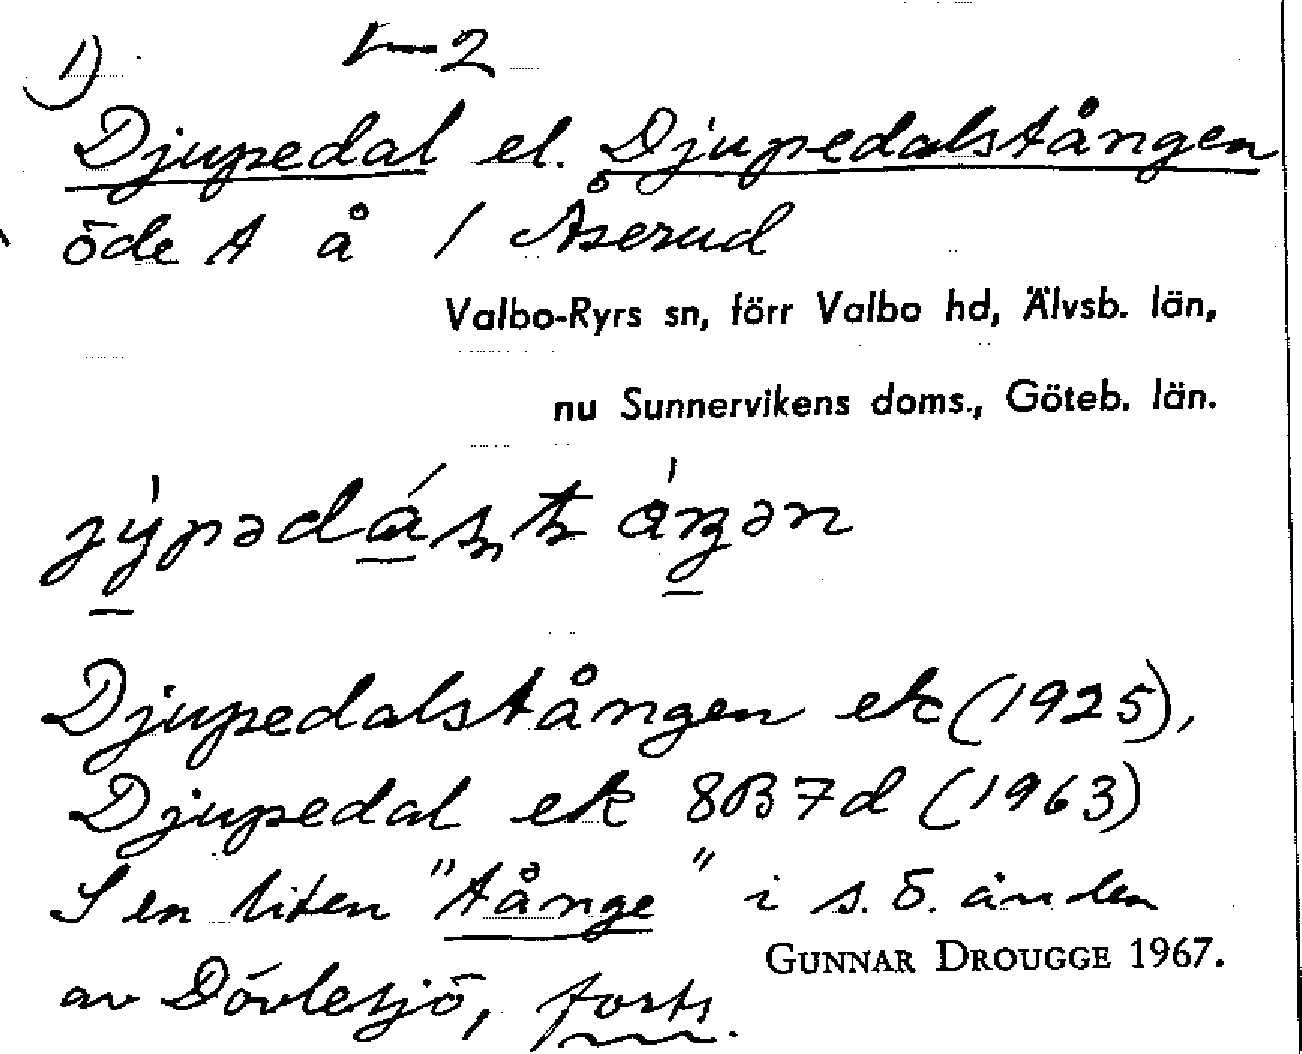 1) 1–2
Djupedal el. Djupedalstången
öde t å / Åserud
Valbo-Ryrs sn, förr Valbo hd, Älvsb. län,
nu Sunnervikens doms., Göteb. län.
Djupedalstången ek (1925),
Djupedal ek 8B7d (1963)
I en liten "tånge" i s.ö. änden
GUNNAR DROUGGE 1967.
av Dövlesjö, forts.